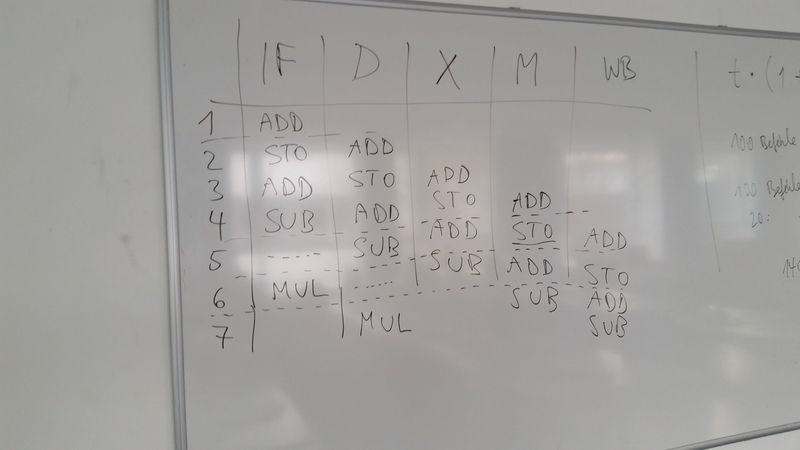 IF D X M WB t · (1 -
1 ADD
2 STO ADD 100 Befehle
3 ADD STO ADD
4 SUB ADD STO ADD 20:
5 ...... SUB ADD STO ADD
6 MUL ...... SUB ADD STO 140
SUB ADD
7 MUL SUB